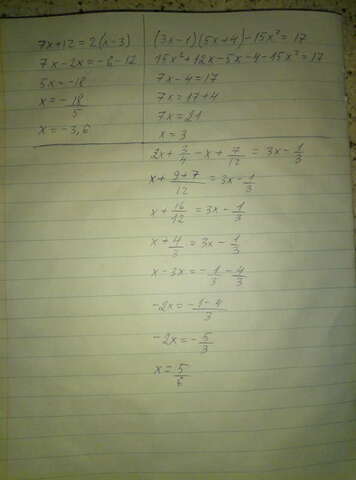 7x+12=2(x-3)
7x-2x=-6-12
5x=-18
x=-18/5
x=-3,6
(3x-1)(5x+4)-15x²=17
15x²+12x-5x-4-15x²=17
7x-4=17
7x=17+4
7x=21
x=3
2x+3/4-x+7/12=3x-1/3
x+9+7/12=3x-1/3
x+16/12=3x-1/3
x+4/3=3x-1/3
x-3x=-1/3-4/3
-2x=-1-4/3
-2x=-5/3
x=5/6